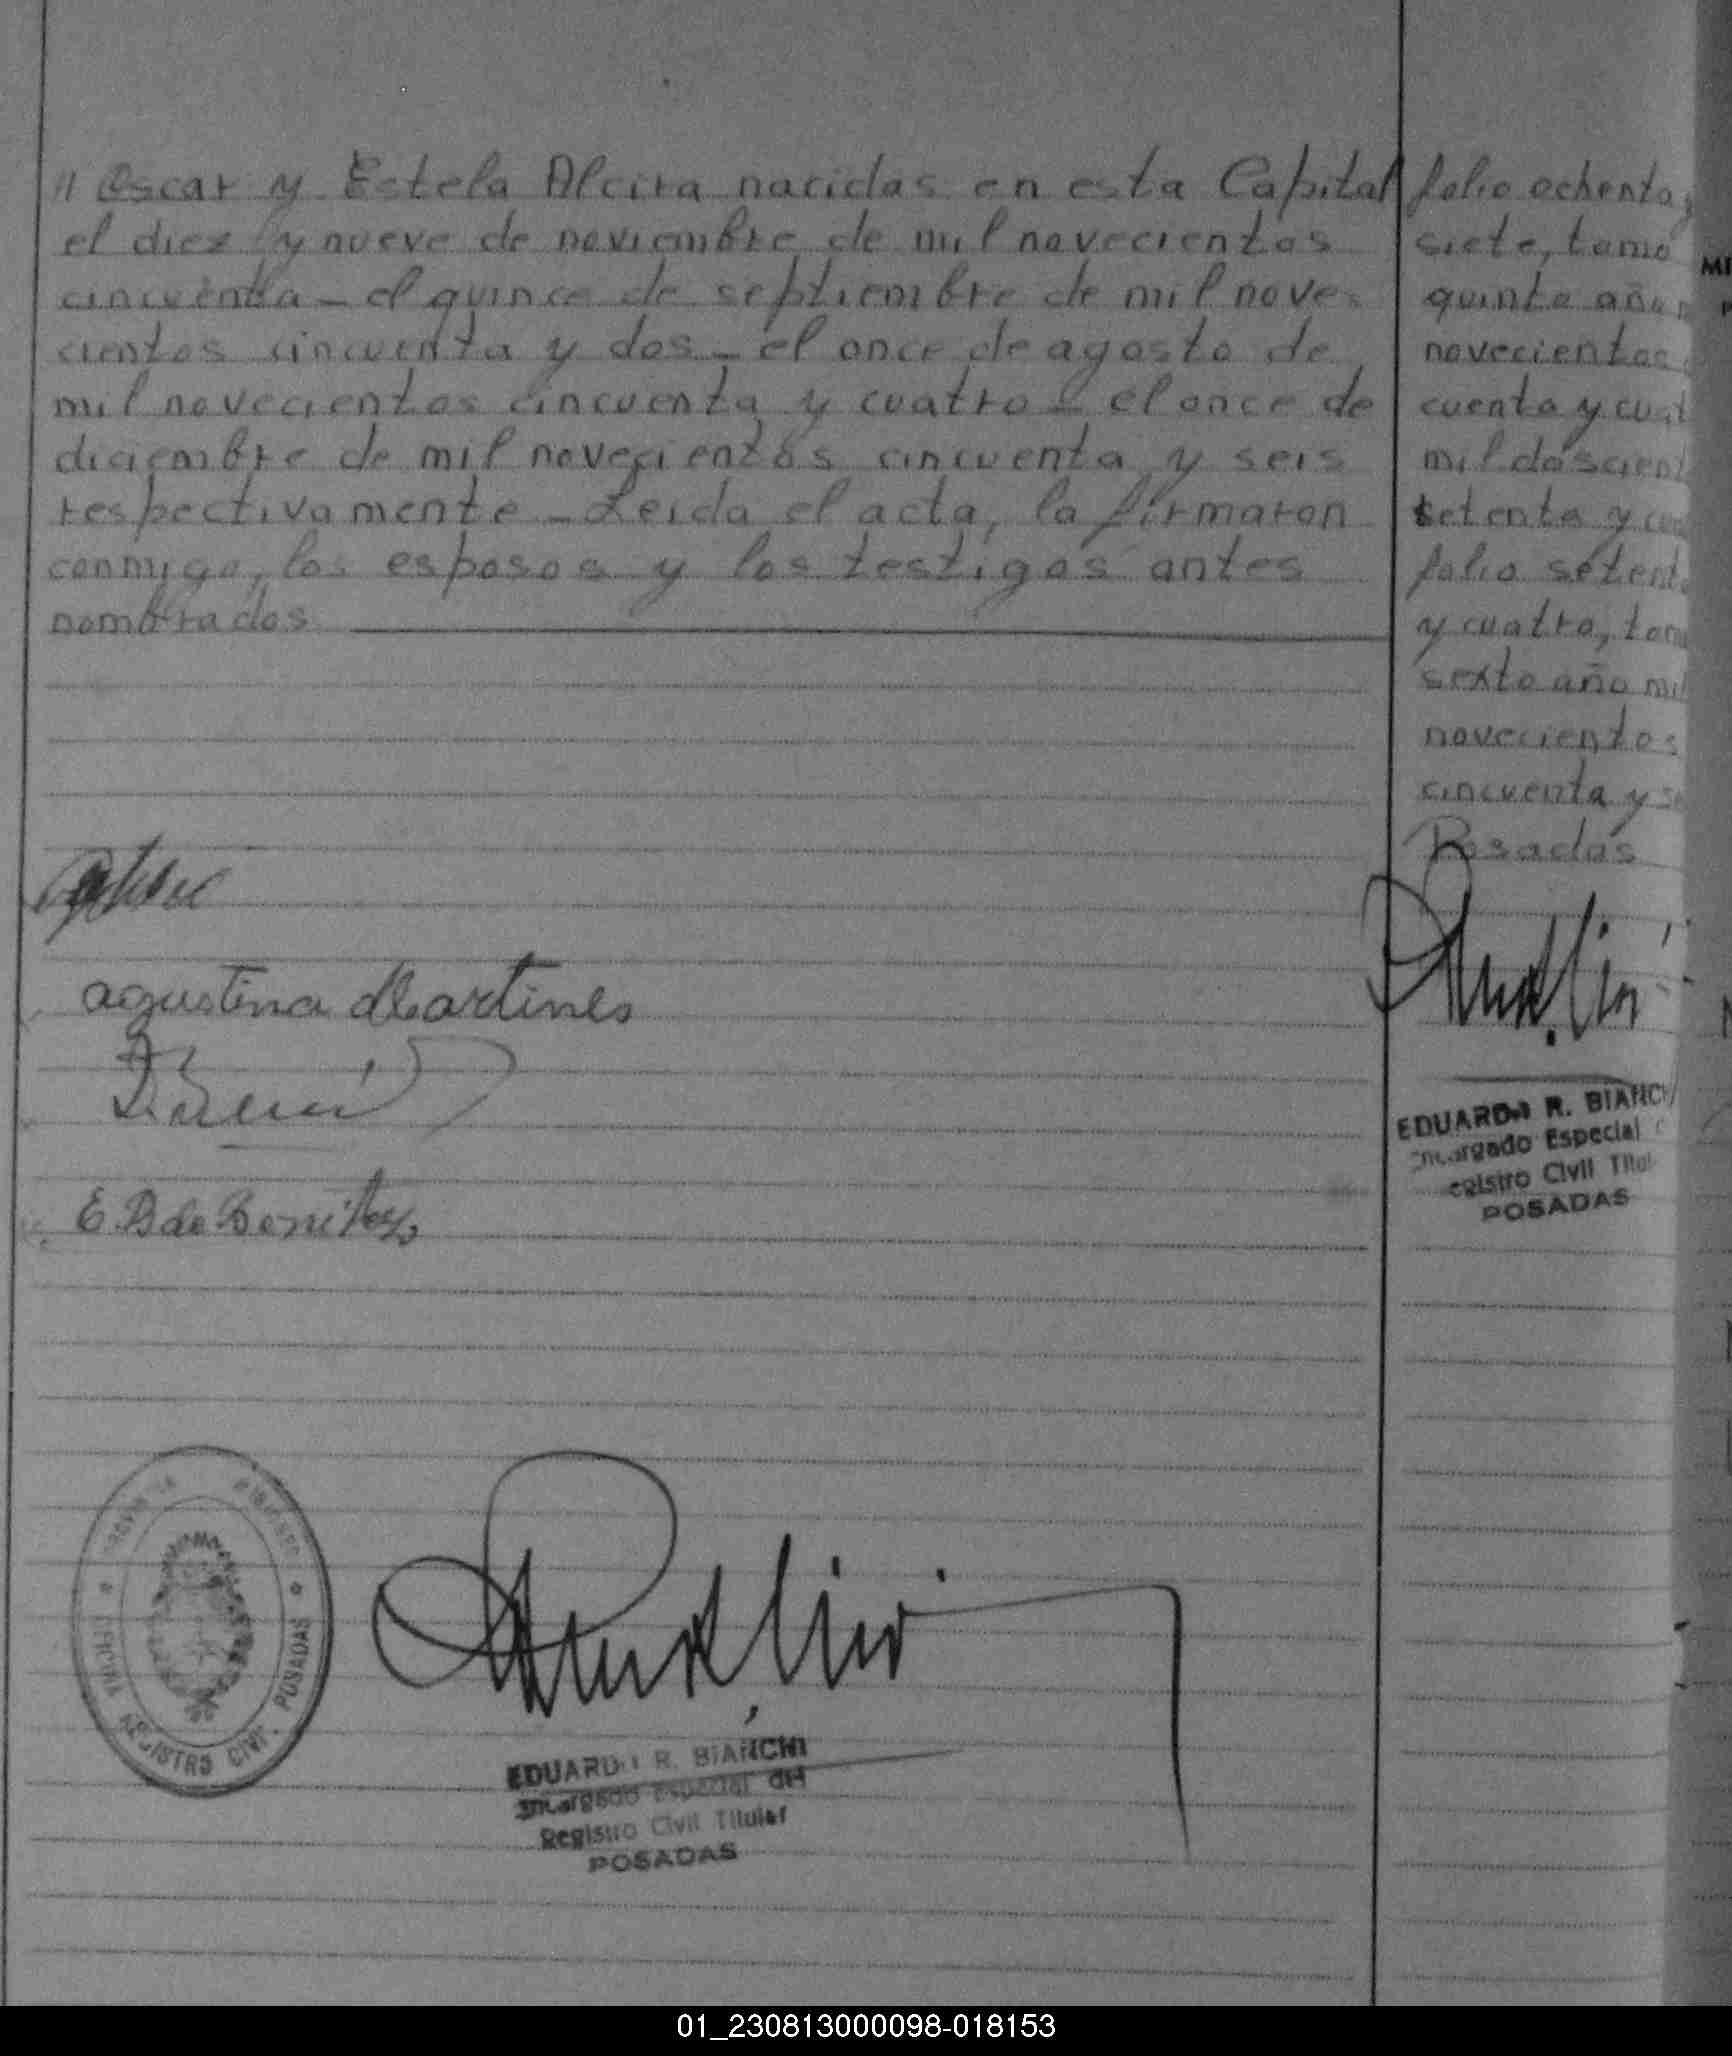 // Oscar y Estela Alcira nacidas en esta Capital
el diez y nueve de noviembre de mil novecientos
cincuenta - el quince de septiembre de mil nove-
cientos cincuenta y dos - el once de agosto de
mil novecientos cincuenta y cuatro - el once de
diciembre de mil novecientos cincuenta y seis
respectivamente - Leida el acta, la firmaron
conmigo, los esposos y los testigos antes
nombrados
agustina Martines
E. B de Benitez
PROVINCIA MISIONES
OFICINA REGISTRO CIVIL POSADAS
EDUARDO R. BIANCHI
Encargado Especial del
Registro Civil Titular
POSADAS
folio ochenta y
siete, tomo
quinto año
novecientos
cuenta y cuat
mil doscient
setenta y
folio setent
y cuatro, tom
sexto año mil
novecientos
cincuenta y se
Posadas
EDUARDO R. BIANCHI
Encargado Especial
egistro Civil Titul
POSADAS
01_230813000098-018153